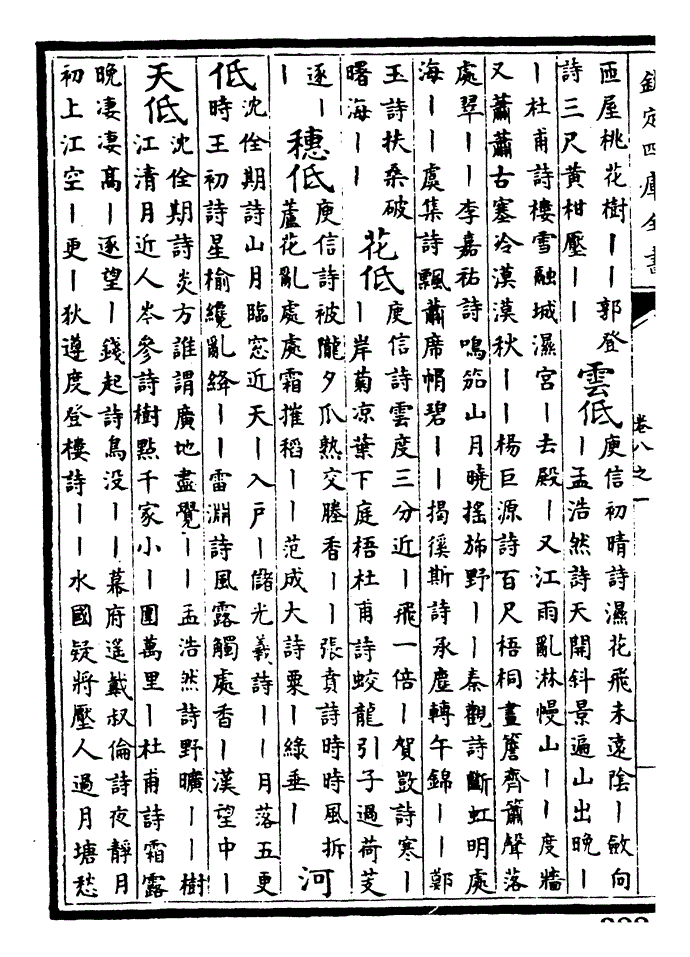 欽定四庫全書
卷八之一
西屋桃花樹丨丨郭登
詩三尺黃柑壓丨丨
雲低
庾信初晴詩濕花飛未遠陰丨斂向
丨孟浩然詩天開斜景遍山出晚丨
丨杜甫詩樓雪融城濕宮丨去殿丨又江雨亂淋幔山丨丨度牆
又蕭蕭古塞冷漠漠秋丨丨楊巨源詩百尺梧桐畫簷齊簫聲落
處翠丨丨李嘉祐詩鳴笳山月曉搖旆野丨丨秦觀詩斷虹明處
海丨丨虞集詩飄蕭席帽碧丨丨揭徯斯詩承塵轉午錦丨丨鄭
玉詩扶桑破
曙海丨丨
花低
庾信詩雲度三分近丨飛一倍丨賀詩寒丨
丨岸菊凉葉下庭梧杜甫詩蛟龍引子過荷芰
逐丨
丨
穗低
庾信詩被隴夕爪熟交塍香丨丨張賁詩時時風拆
蘆花亂處處霜摧稻丨丨范成大詩粟丨綠垂丨
河
低
沈佺期詩山月臨窓近天丨入戶丨儲光羲詩丨丨月落五更
時王初詩星榆纔亂絳丨丨雷淵詩風露觸處香丨漢望中丨
天低
沈佺期詩炎方誰謂廣地盡覺丨丨孟浩然詩野曠丨丨樹
江清月近人岑參詩樹點千家小丨圍萬里丨杜甫詩霜露
晚凄凄高丨逐望丨錢起詩鳥没丨丨幕府遥戴叔倫詩夜靜月
初上江空丨更丨狄遵度登樓詩丨丨水國疑將壓人過月塘愁